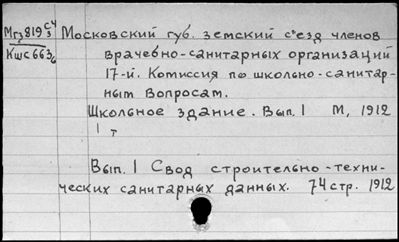 Мгз819 с4/3 Московский губ. земский съезд членов
Кшс663/6 врачебно-санитарных организаций
17-й. Комиссия по школьно-санитар-
ным вопросам.
Школьное здание. Вып. 1 М, 1912
1 т
Вып. 1 Свод строительно-техни-
ческих санитарных данных. 74 стр. 1912